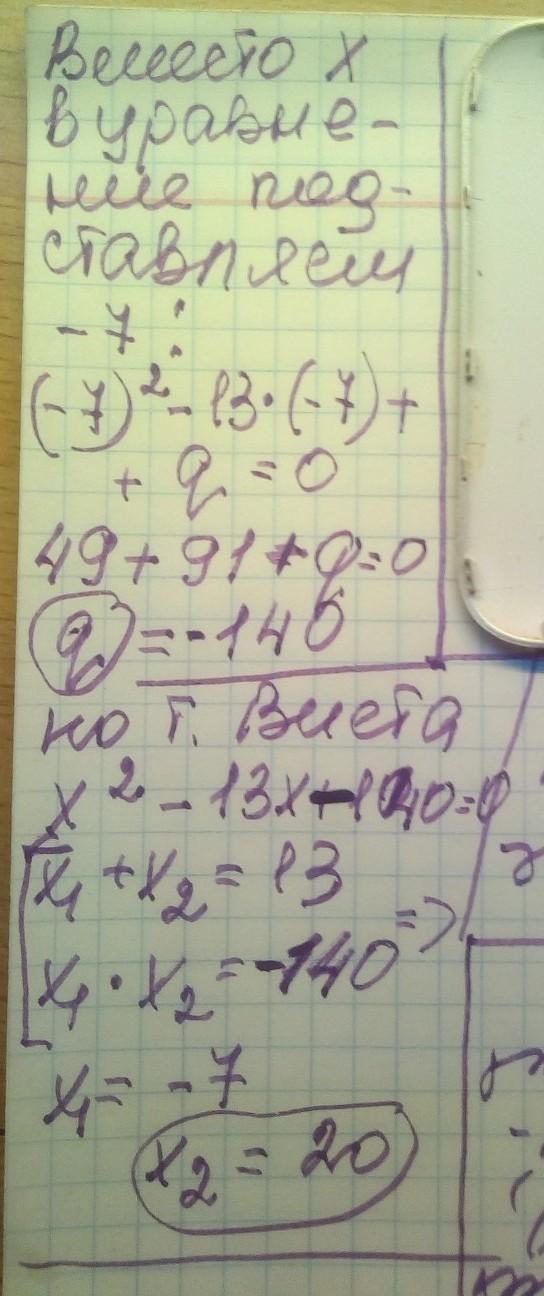 Вместо х
в уравне-
ние под-
ставляем
-7 :
(-7)² - 13·(-7) +
+ q = 0
49 + 91 + q = 0
q = -140
по т. Виета
x² - 13x - 140 = 0
x₁ + x₂ = 13
=>
x₁ · x₂ = -140
x₁ = -7
x₂ = 20